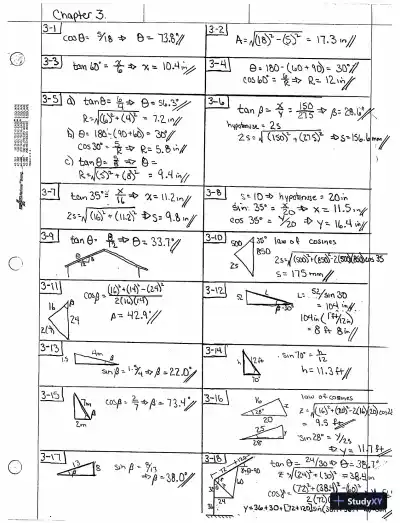 Chapter 3.
3-1
cosθ = 5/18 ⇒ θ = 73.8°
3-2
A = √(18)² - (5)² = 17.3 in
3-3
tan 60° = x/6 ⇒ x = 10.4 in
3-4
θ = 180 - (60 + 90) = 30°
cos 60° = 6/R ⇒ R = 12 in
3-5
a) tanθ = 6/4 ⇒ θ = 56.3°
R = √(6)² + (4)² = 7.2 in
b) θ = 180 - (90 + 60) = 30°
cos 30° = 5/R ⇒ R = 5.8 in
c) tanθ = 5/8 ⇒ θ =
R = √(5)² + (8)² = 9.4 in
3-6
tan β = x/y = 150/275 ⇒ β = 28.6°
hypotenuse = 2s
2s = √(150)² + (275)² ⇒ s = 156.6 mm
3-7
tan 35° = x/16 ⇒ x = 11.2 in
2s = √(16)² + (11.2)² ⇒ s = 9.8 in
3-8
s = 10 ⇒ hypotenuse = 20 in
sin 35° = x/20 ⇒ x = 11.5 in
cos 35° = y/20 ⇒ y = 16.4 in
3-9
tanθ = 8/12 ⇒ θ = 33.7°
3-10
500
35°
850
2s
law of cosines
s = 175 mm
3-11
16
14
24
cosβ = (16)² + (14)² - (24)² / 2(16)(14)
3-12
52
L
L = 52/sin 30
= 104 in
104 in (1 ft/12 in)
= 8 ft 8 in
3-13
1.5
4m
β
sin β = 1.5/4 ⇒ β = 22.0°
3-14
12ft
h
70°
sin 70° = h/12
h = 11.3 ft
3-15
7m
β
2m
cosβ = 2/7 ⇒ β = 73.4°
3-16
16
z
28°
20
25
y
28°
law of cosines
= 9.5 ft
sin 28° = y/25
⇒ y = 11.7 ft
3-17
13
8
β
sin β = 8/13
⇒ β = 38.0°
3-18
72
24
30
36
tanθ = 24/30 ⇒ θ = 38.7°
z = √(24)² + (30)² = 38.4 in
StudyXY